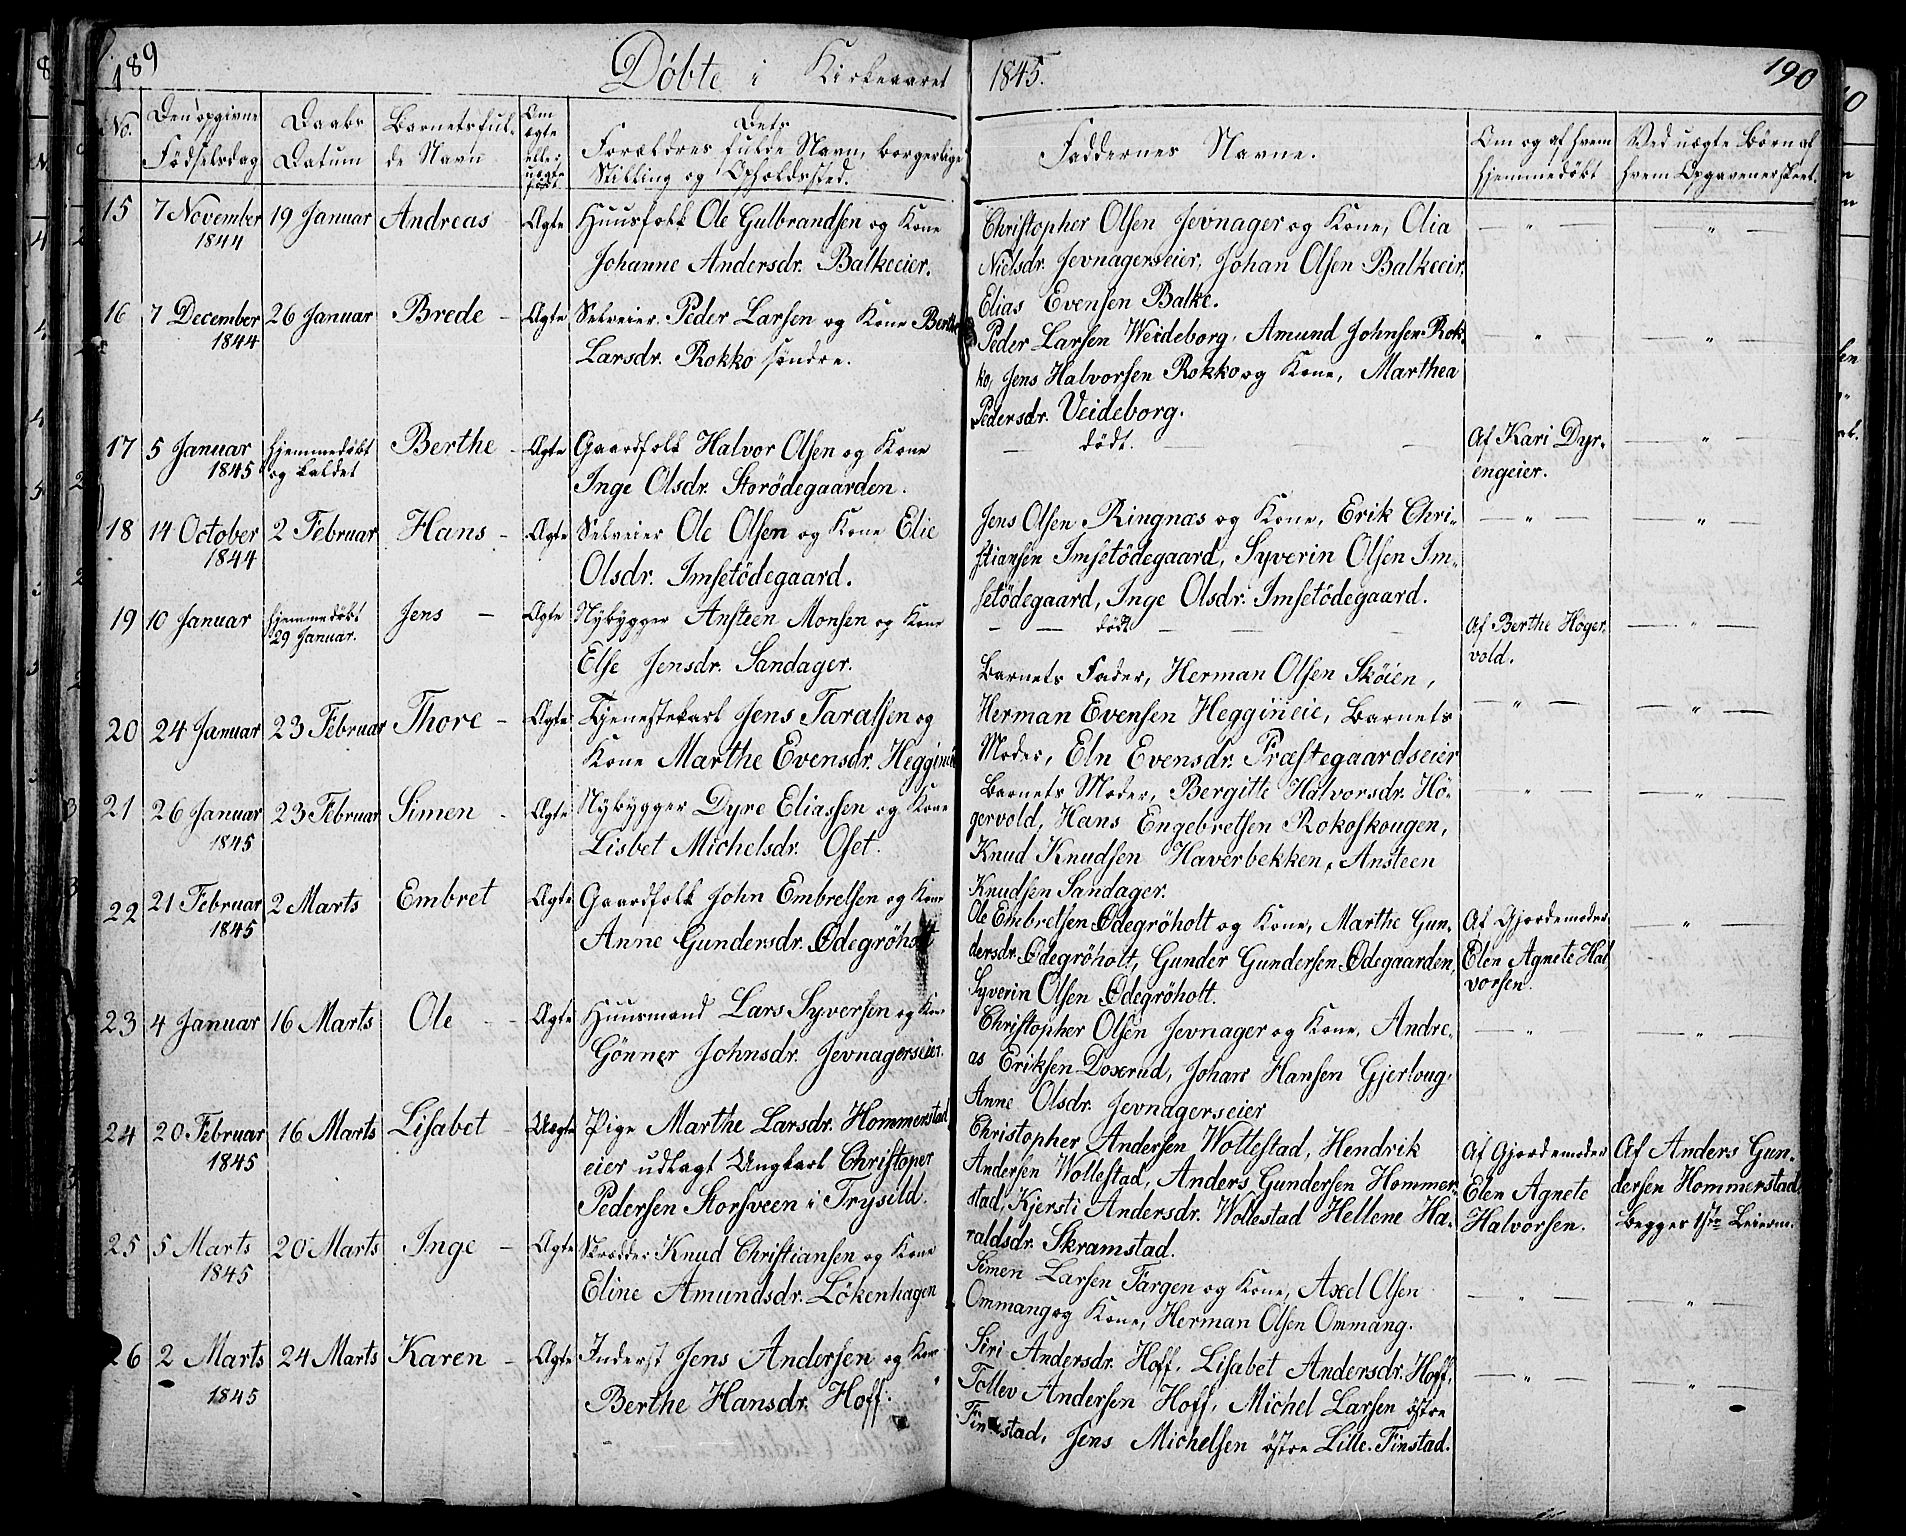 189
Döbte i Kirkeaaret
1845.
190
No.
Den opgivne
Födselsdag
Daabs
Datum
Barnets ful-
de Navn
Om
ægte
eller
uægte
født.
Dets
Forældres fulde Navn, borgerlige
Stilling og Opholdssted.
Faddernes Navne.
Om og af hvem
hjemmedöbt
Ved uægte Börn af
hvem Opgaven er skeet.
15
7 November
1844
19 Januar
Andreas
Ægte
Huusfolk Ole Gulbrandsen og Kone
Johanne Andersdr. Balkeeier.
Christopher Olsen Jevnager og Kone, Olia
Nielsdr. Jevnagerseier, Johan Olsen Balkeeir.
Elias Evensen Balke.
16
7 December
1844
26 Januar
Brede -
Ægte
Selveier Peder Larsen og Kone Berthe
Larsdr. Rokko söndre.
Peder Larsen Weideborg, Amund Johnsen Rok-
ko, Jens Halvorsen Rokko og Kone, Marthea
Pedersdr. Veideborg.
17
5 Januar
1845
hjemmedöbt
og kaldet
Berthe -
Ægte
Gaardfolk Halvor Olsen og Kone
Inge Olsdr. Storödegaarden.
- dödt. -
Af Kari Dyr-
engeier.
18
14 October
1844
2 Februar
Hans -
Ægte
Selveier Ole Olsen og Kone Elie
Olsdr. Imsetödegaard.
Jens Olsen Ringnæs og Kone, Erik Chri-
stiansen Imsetödegaard, Syverin Olsen Im-
setödegaard, Inge Olsdr. Imsetödegaard.
19
10 Januar
hjemmedöbt
29 Januar.
Jens -
Ægte
Nybygger Ansteen Monsen og Kone
Else Jensdr. Sandager.
- dödt -
Af Berthe Höger-
vold.
20
24 Januar
23 Februar
Thore -
Ægte
Tjenestekarl Jens Taralsen og
Kone Marthe Evensdr. Heggineie
Barnets Fader, Herman Olsen Sköien,
Herman Evensen Heggineie, Barnets
Moder, Eln Evensdr. Præstegaardseier
21
26 Januar
1845
23 Februar
Simen -
Ægte
Nybygger Dyre Eliassen og Kone
Lisbet Michelsdr. Oset.
Barnets Moder, Bergitte Halvorsdr. Hö-
gervold, Hans Engebretsen Rokoskougen,
Knud Knudsen Haverbekken, Ansteen
Knudsen Sandager.
22
21 Februar
1845
2 Marts
Embret
Ægte
Gaardfolk John Embretsen og Kone
Anne Gundersdr. Ödegröholt
Ole Embretsen Ödegröholt og Kone, Marthe Gun-
dersdr. Ödegröholt, Gunder Gundersen Ödegaarden,
Syverin Olsen Ödegröholt.
Af Gjordemoder
Elen Agnete Hal
vorsen.
23
4 Januar
16 Marts
Ole -
Ægte
Huusmand Lars Syversen og Kone
Gönner Johnsdr. Jevnagerseier.
Christopher Olsen Jevnager og Kone, Andre-
as Eriksen Doxrud, Johan Hansen Gjerloug,
Anne Olsdr. Jevnagerseier
24
20 Februar
1845
16 Marts
Lisabet -
Uægte
Pige Marthe Larsdr. Hommerstad
eier udlagt Ungkarl Christoper
Pedersen Storsveen i Trysild.
Christopher Andersen Wollestad, Hendrik
Andersen Wollestad, Anders Gundersen Hommer-
stad, Kjersti Andersdr. Wollestad Hellene Ha-
raldsdr. Skramstad.
Af Gjordemoder
Elen Agnete
Halvorsen.
Af Anders Gun-
dersen Hommerstad
begges 1ste Leierm.
25
5 Marts
1845
20 Marts
Inge -
Ægte
Skrædder Knud Christiansen og Kone
Eline Amundsdr. Lökenhagen
Simen Larsen Fargen og Kone, Axel Olsen
Ommang og Kone, Herman Olsen Ommang.
26
2 Marts
1845
24 Marts
Karen -
Ægte
Inderst Jens Andersen og Kone
Berthe Hansdr. Hoff.
Siri Andersdr. Hoff, Lisabet Andersdr. Hoff,
Tollev Andersen Hoff, Michel Larsen östre
Finstad, Jens Michelsen östre Lille-Finstad.